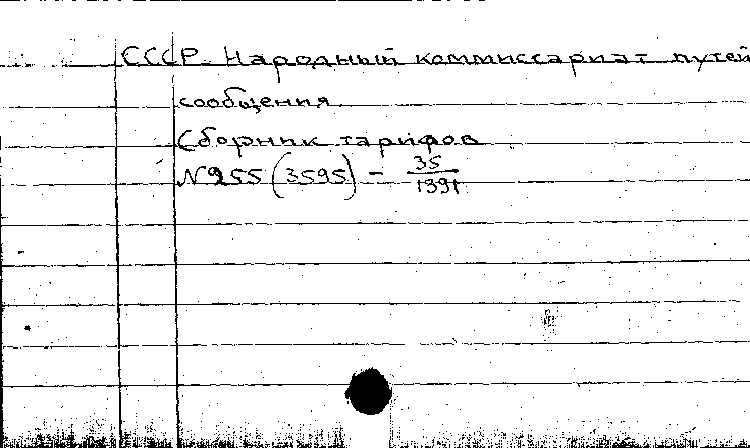 СССР. Народный коммиссариат путей
сообщения.
Сборник тарифов
№255 (3595) - 35/1391